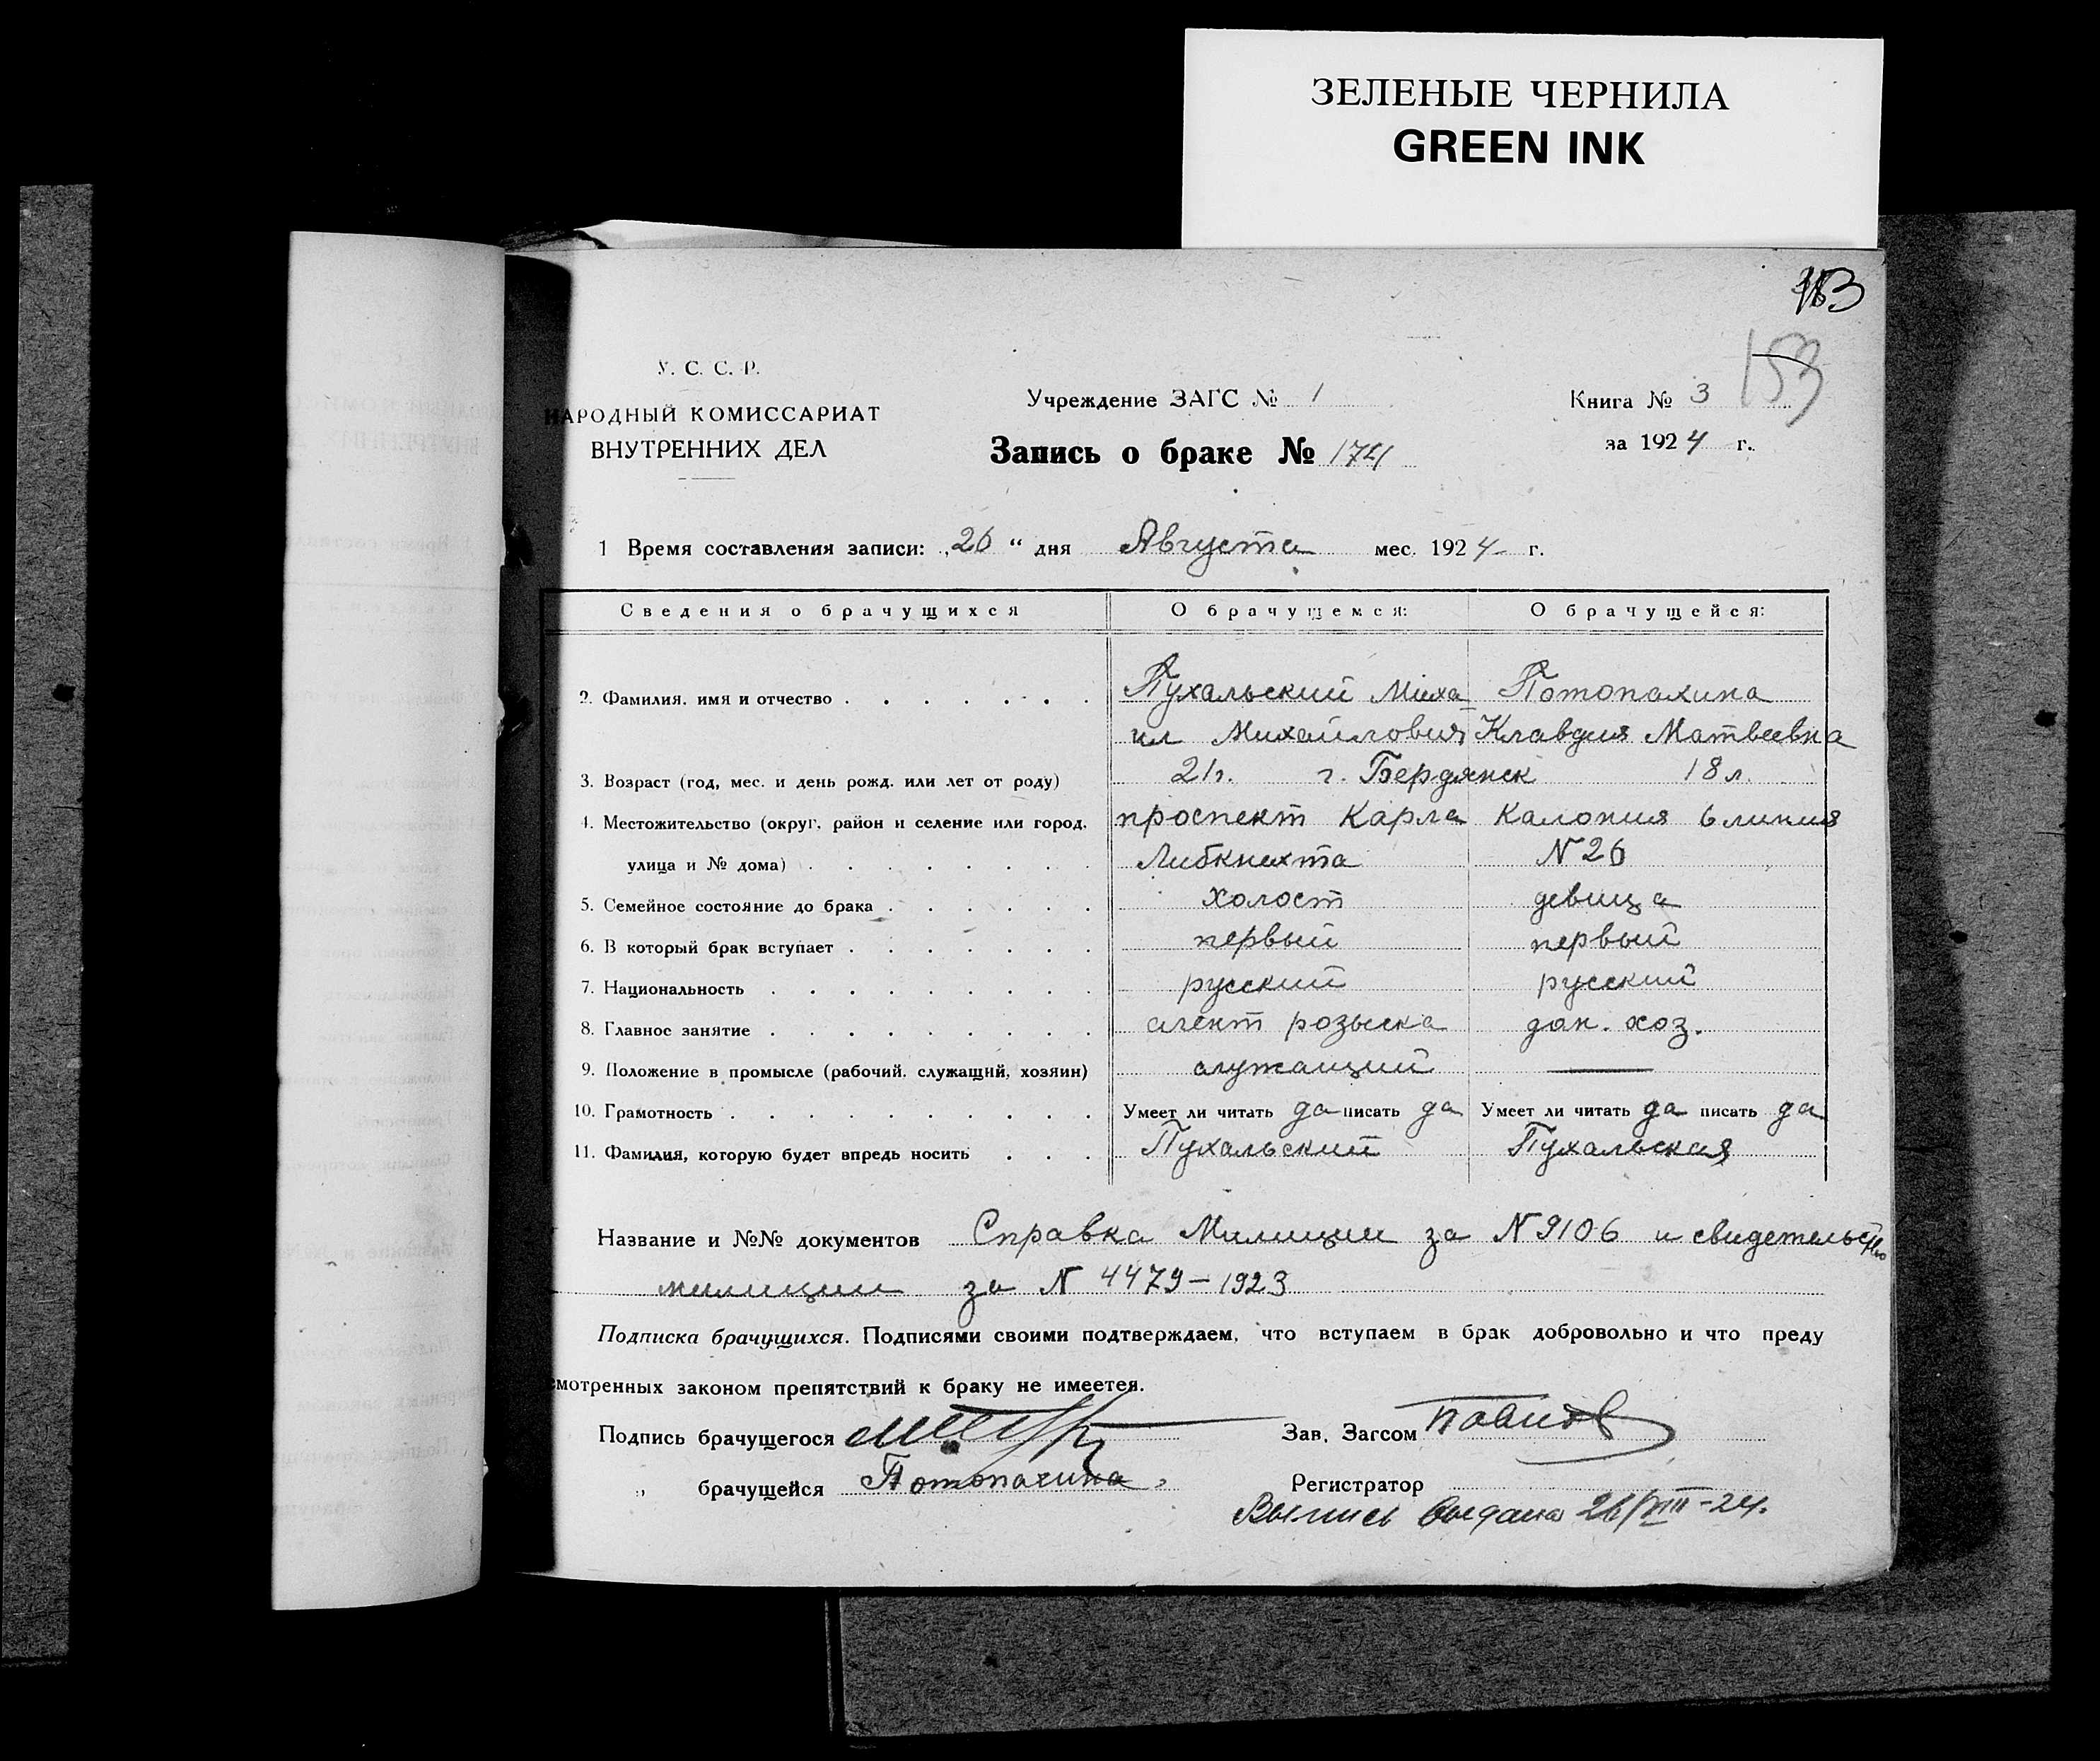 ЗЕЛЕНЫЕ ЧЕРНИЛА
GREEN INK
153
У. С. С. Р.
НАРОДНЫЙ КОМИССАРИАТ
ВНУТРЕННИХ ДЕЛ
Учреждение ЗАГС № 1
Книга № 3
за 1924 г.
Запись о браке № 174
1 Время составления записи: „26“ дня Августа мес. 1924 г.
Сведения о брачущихся О брачущемся: О брачущейся:
2. Фамилия, имя и отчество Пухальский Миха Потопахина
ил Михайлович Клавдия Матвеевна
3. Возраст (год, мес. и день рожд. или лет от роду) 21г. г. Бердянск 18 л.
4. Местожительство (округ, район и селение или город, проспект Карла Калония 6 линия
улица и № дома) Либкнехта N 26
5. Семейное состояние до брака холост девица
6. В который брак вступает первый первый
7. Национальность русский русский
8. Главное занятие агент розыска дом. хоз.
9. Положение в промысле (рабочий, служащий, хозяин) служащий —
10. Грамотность Умеет ли читать да писать да Умеет ли читать да писать да
11. Фамилия, которую будет впредь носить Пухальский Пухальская
Название и №№ документов Справка Милиции за N 9106 и свидетельство
милиции за N 4479 – 1923
Подписка брачущихся. Подписями своими подтверждаем, что вступаем в брак добровольно и что преду
смотренных законом препятствий к браку не имеется.
Подпись брачущегося Зав. Загсом
„ брачущейся Потопахина Регистратор
Выпись выдана 26/VIII – 24.